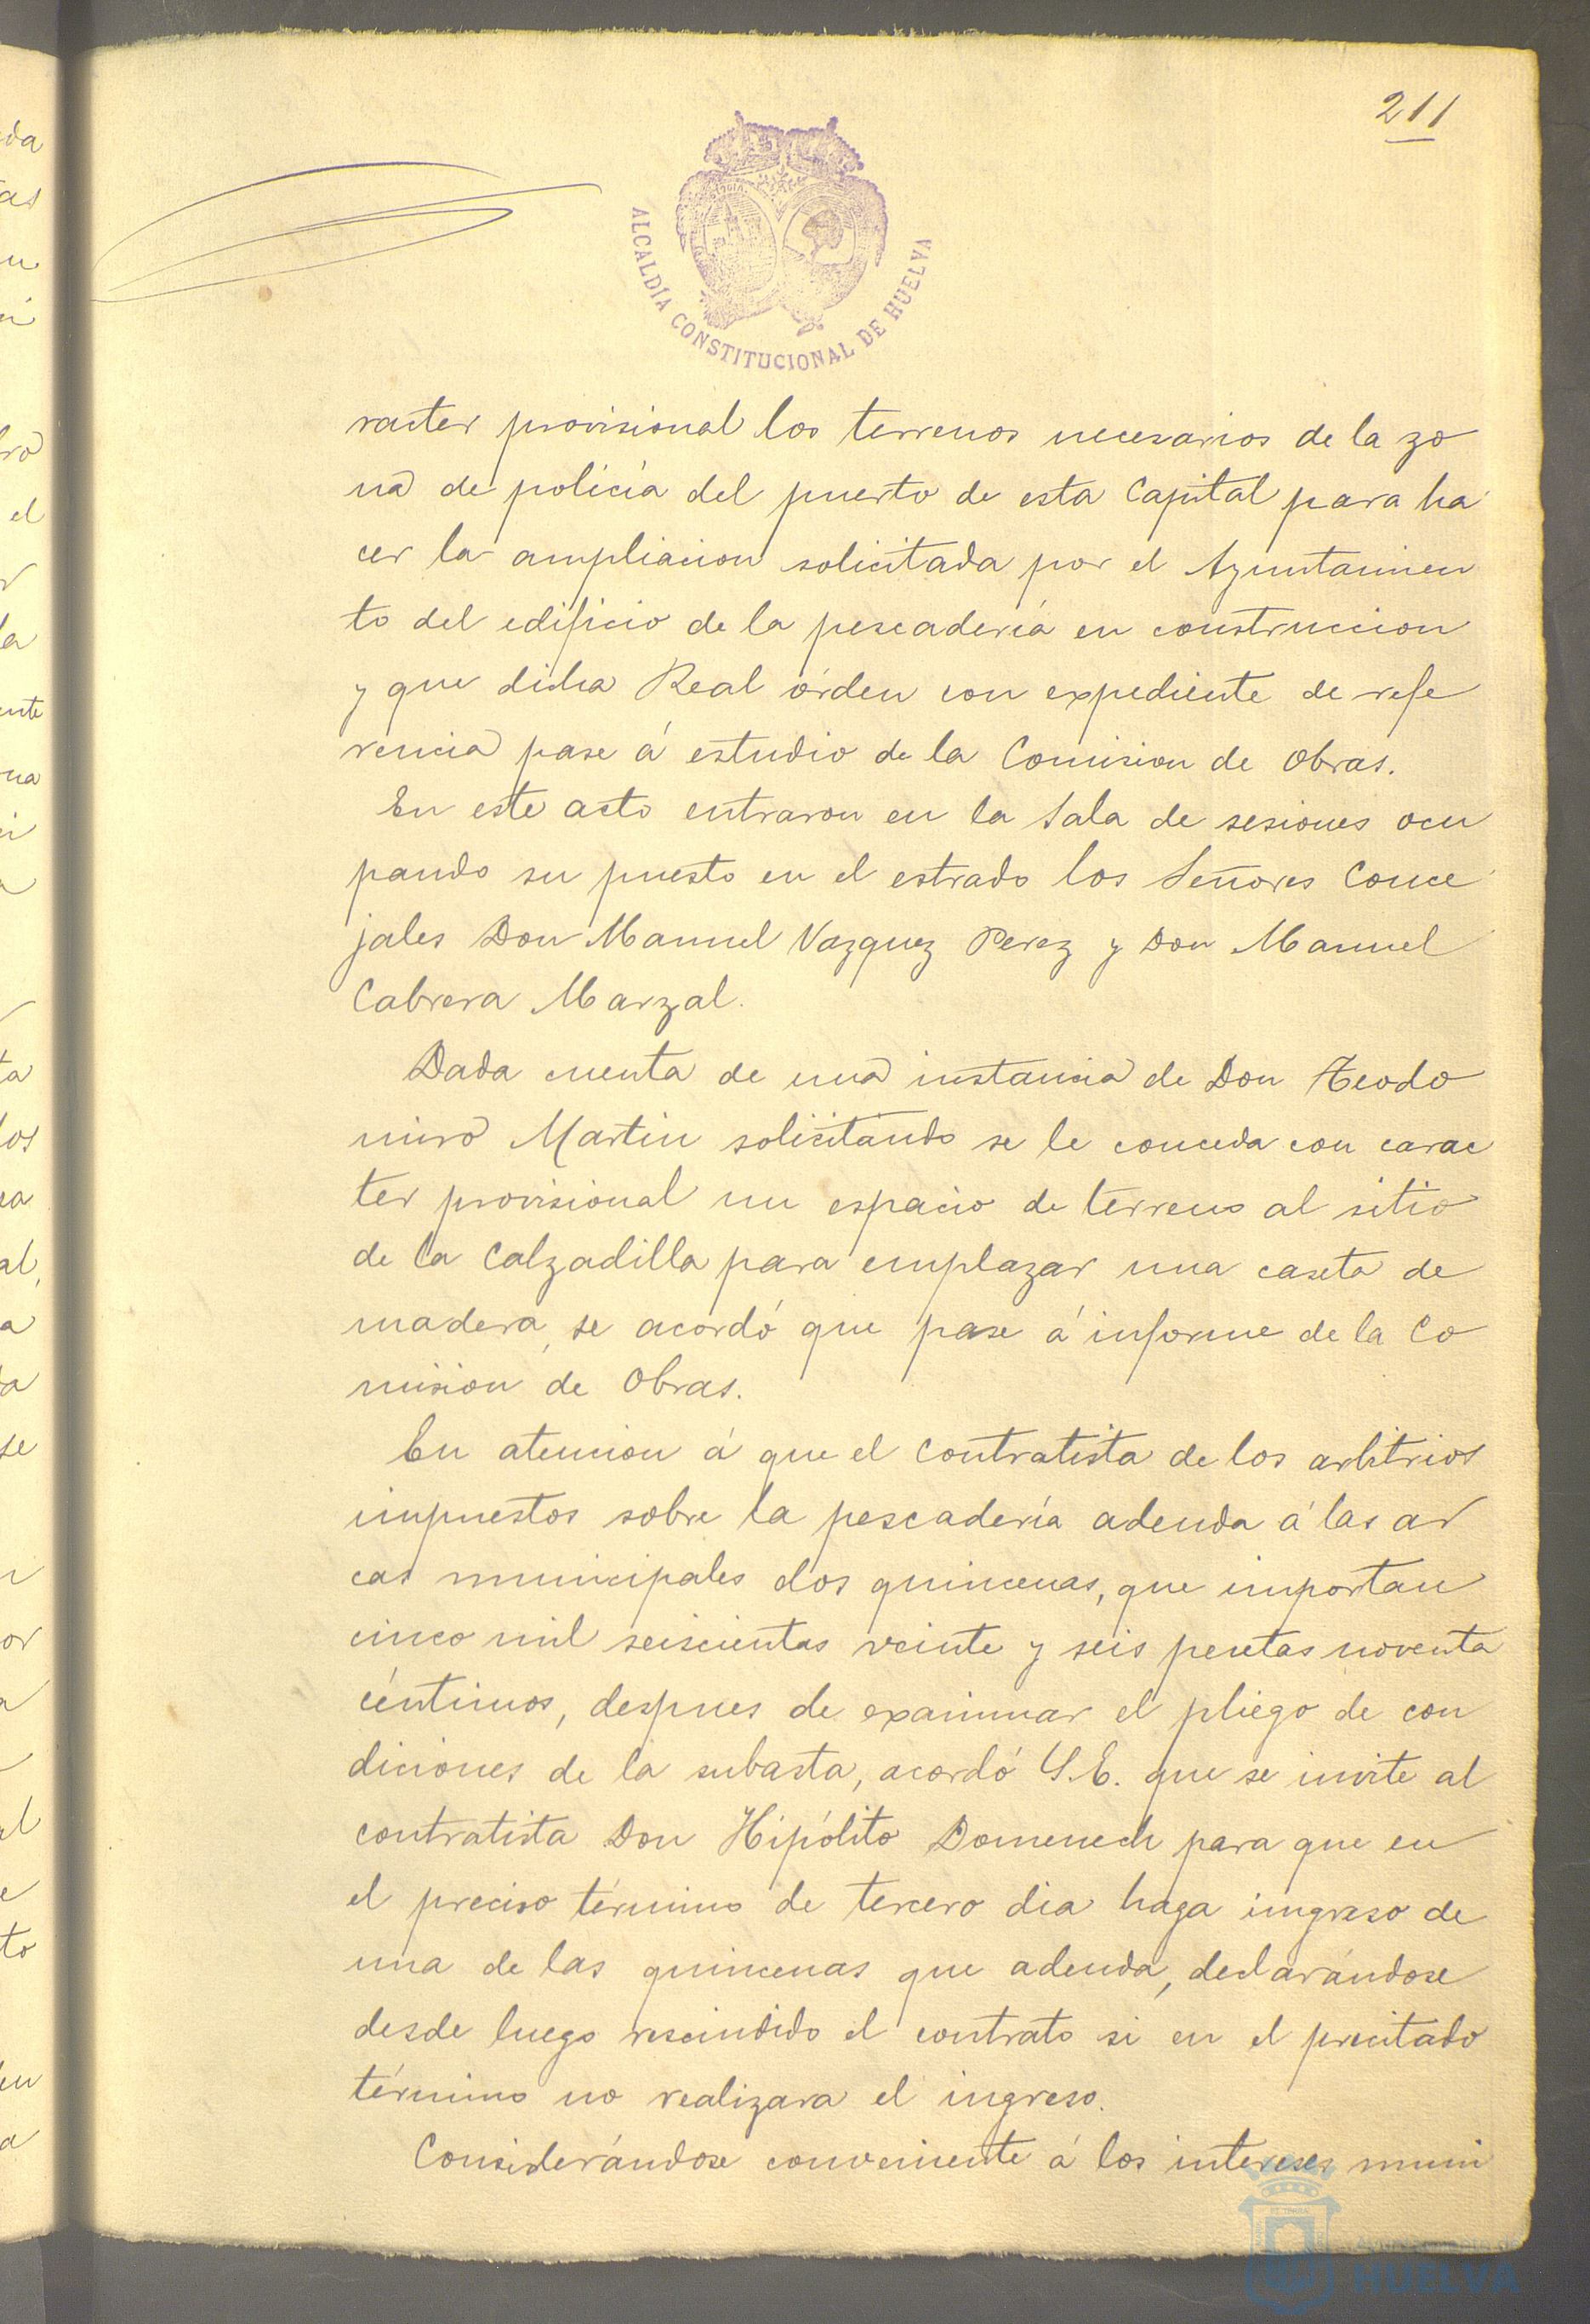 211
ALCALDÍA CONSTITUCIONAL DE HUELVA
racter provisional los terrenos necesarios de la zo
na de policía del puerto de esta Capital para ha
cer la ampliacion solicitada por el Ayuntamien
to del edificio de la pescadería en construccion
y que dicha Real órden con expediente de refe
rencia pase á estudio de la Comision de Obras.
En este acto entraron en la Sala de sesiones ocu
pando su puesto en el estrado los Señores Conce
jales Don Manuel Vazquez Perez y Don Manuel
Cabrera Marzal.
Dada cuenta de una instancia de Don Teodo
miro Martin solicitando se le conceda con carac
ter provisional un espacio de terreno al sitio
de la Calzadilla para emplazar una caseta de
madera, se acordó que pase á informe de la Co
mision de Obras.
En atencion á que el contratista de los arbitrios
impuestos sobre la pescadería adeuda á las ar
cas municipales dos quincenas, que importan
cinco mil seiscientas veinte y seis pesetas noventa
céntimos, despues de examinar el pliego de con
diciones de la subasta, acordó S.E. que se invite al
contratista Don Hipólito Domenech para que en
el preciso término de tercero dia haga ingreso de
una de las quincenas que adeuda, declarándose
desde luego rescindido el contrato si en el precitado
término no realizara el ingreso.
Considerándose conveniente á los intereses muni
HUELVA